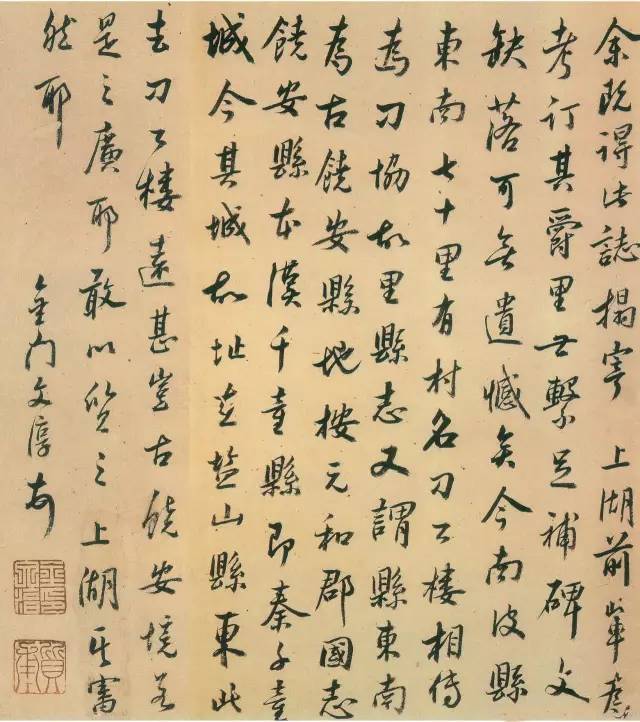 余既得此誌搨寄 上湖前輩
考訂其爵里世繫足補碑文
缺落可無遺憾矣今南皮縣
東南七十里有村名刁公樓相傳
為刁協故里縣志又謂縣東南
為古饒安縣地按元和郡國志
饒安縣本漢千童縣即秦千童
城今其城故址在鹽山縣東此
去刁公樓遠甚豈古饒安境若
是之廣耶敢以質之 上湖其審
然耶
金門文淳